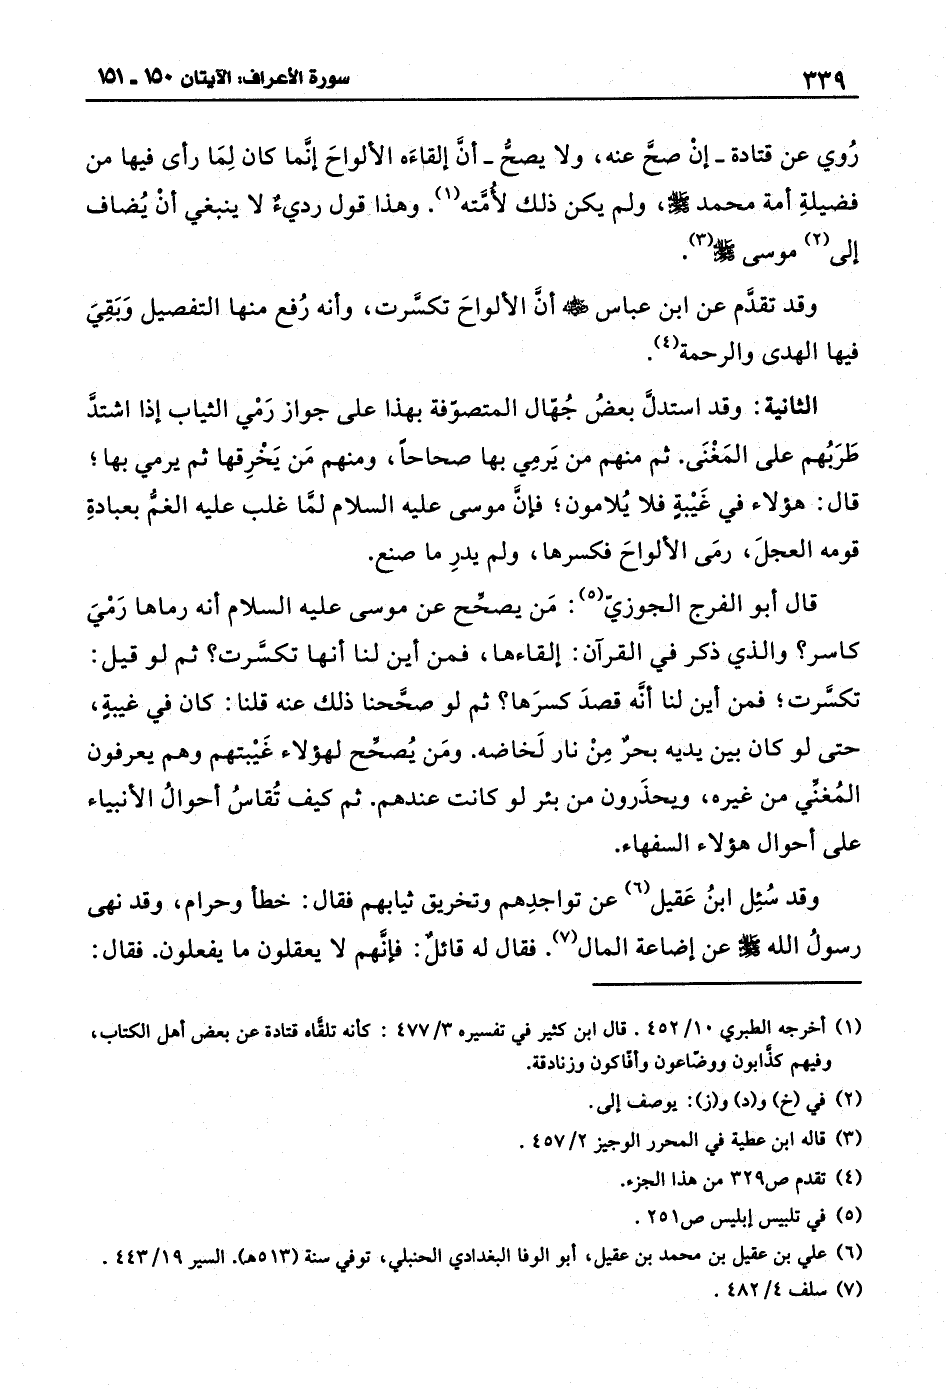 ٣٣٩ سورة الأعراف: الآيتان ١٥٠ ـ ١٥١
رُوي عن قتادة ـ إنْ صحَّ عنه، ولا يصحُّ ـ أنَّ إلقاءَه الألواحَ إنَّما كان لِمَا رأى فيها من
فضيلةِ أمة محمد ﷺ، ولم يكن ذلك لأُمَّته(١). وهذا قول رديءٌ لا ينبغي أنْ يُضاف
إلى(٢) موسى ﷺ(٣).
وقد تقدَّم عن ابن عباس ﵄ أنَّ الألواحَ تكسَّرت، وأنه رُفع منها التفصيل وَبَقِيَ
فيها الهدى والرحمة(٤).
الثانية: وقد استدلَّ بعضُ جُهّال المتصوّفة بهذا على جواز رَمْي الثياب إذا اشتدَّ
طَرَبُهم على المَغْنَى. ثم منهم من يَرمِي بها صحاحاً، ومنهم مَن يَخْرِقها ثم يرمي بها؛
قال: هؤلاء في غَيْبةٍ فلا يُلامون؛ فإنَّ موسى عليه السلام لمَّا غلب عليه الغمُّ بعبادةِ
قومه العجلَ، رمَى الألواحَ فكسرها، ولم يدرِ ما صنع.
قال أبو الفرج الجوزيّ(٥): مَن يصحِّح عن موسى عليه السلام أنه رماها رَمْيَ
كاسر؟ والذي ذكر في القرآن: إلقاءها، فمن أين لنا أنها تكسَّرت؟ ثم لو قيل:
تكسَّرت؛ فمن أين لنا أنَّه قصدَ كسرَها؟ ثم لو صحَّحنا ذلك عنه قلنا: كان في غيبةٍ،
حتى لو كان بين يديه بحرٌ مِنْ نار لَخاضه. ومَن يُصحِّح لهؤلاء غَيْبتهم وهم يعرفون
المُغنِّي من غيره، ويحذَرون من بئر لو كانت عندهم. ثم كيف تُقاسُ أحوالُ الأنبياء
على أحوال هؤلاء السفهاء.
وقد سُئِل ابنُ عَقيل(٦) عن تواجدِهم وتخريق ثيابهم فقال: خطأ وحرام، وقد نهى
رسولُ الله ﷺ عن إضاعة المال(٧). فقال له قائلٌ: فإنَّهم لا يعقلون ما يفعلون. فقال:
(١) أخرجه الطبري ١٠/ ٤٥٢ . قال ابن كثير في تفسيره ٣/ ٤٧٧ : كأنه تلقَّاه قتادة عن بعض أهل الكتاب،
وفيهم كذَّابون ووضّاعون وأفّاكون وزنادقة.
(٢) في (خ) و(د) و(ز): يوصف إلى.
(٣) قاله ابن عطية في المحرر الوجيز ٢/ ٤٥٧ .
(٤) تقدم ص٣٢٩ من هذا الجزء.
(٥) في تلبيس إبليس ص٢٥١ .
(٦) علي بن عقيل بن محمد بن عقيل، أبو الوفا البغدادي الحنبلي، توفي سنة (٥١٣هـ). السير ١٩/ ٤٤٣ .
(٧) سلف ٤/ ٤٨٢ .